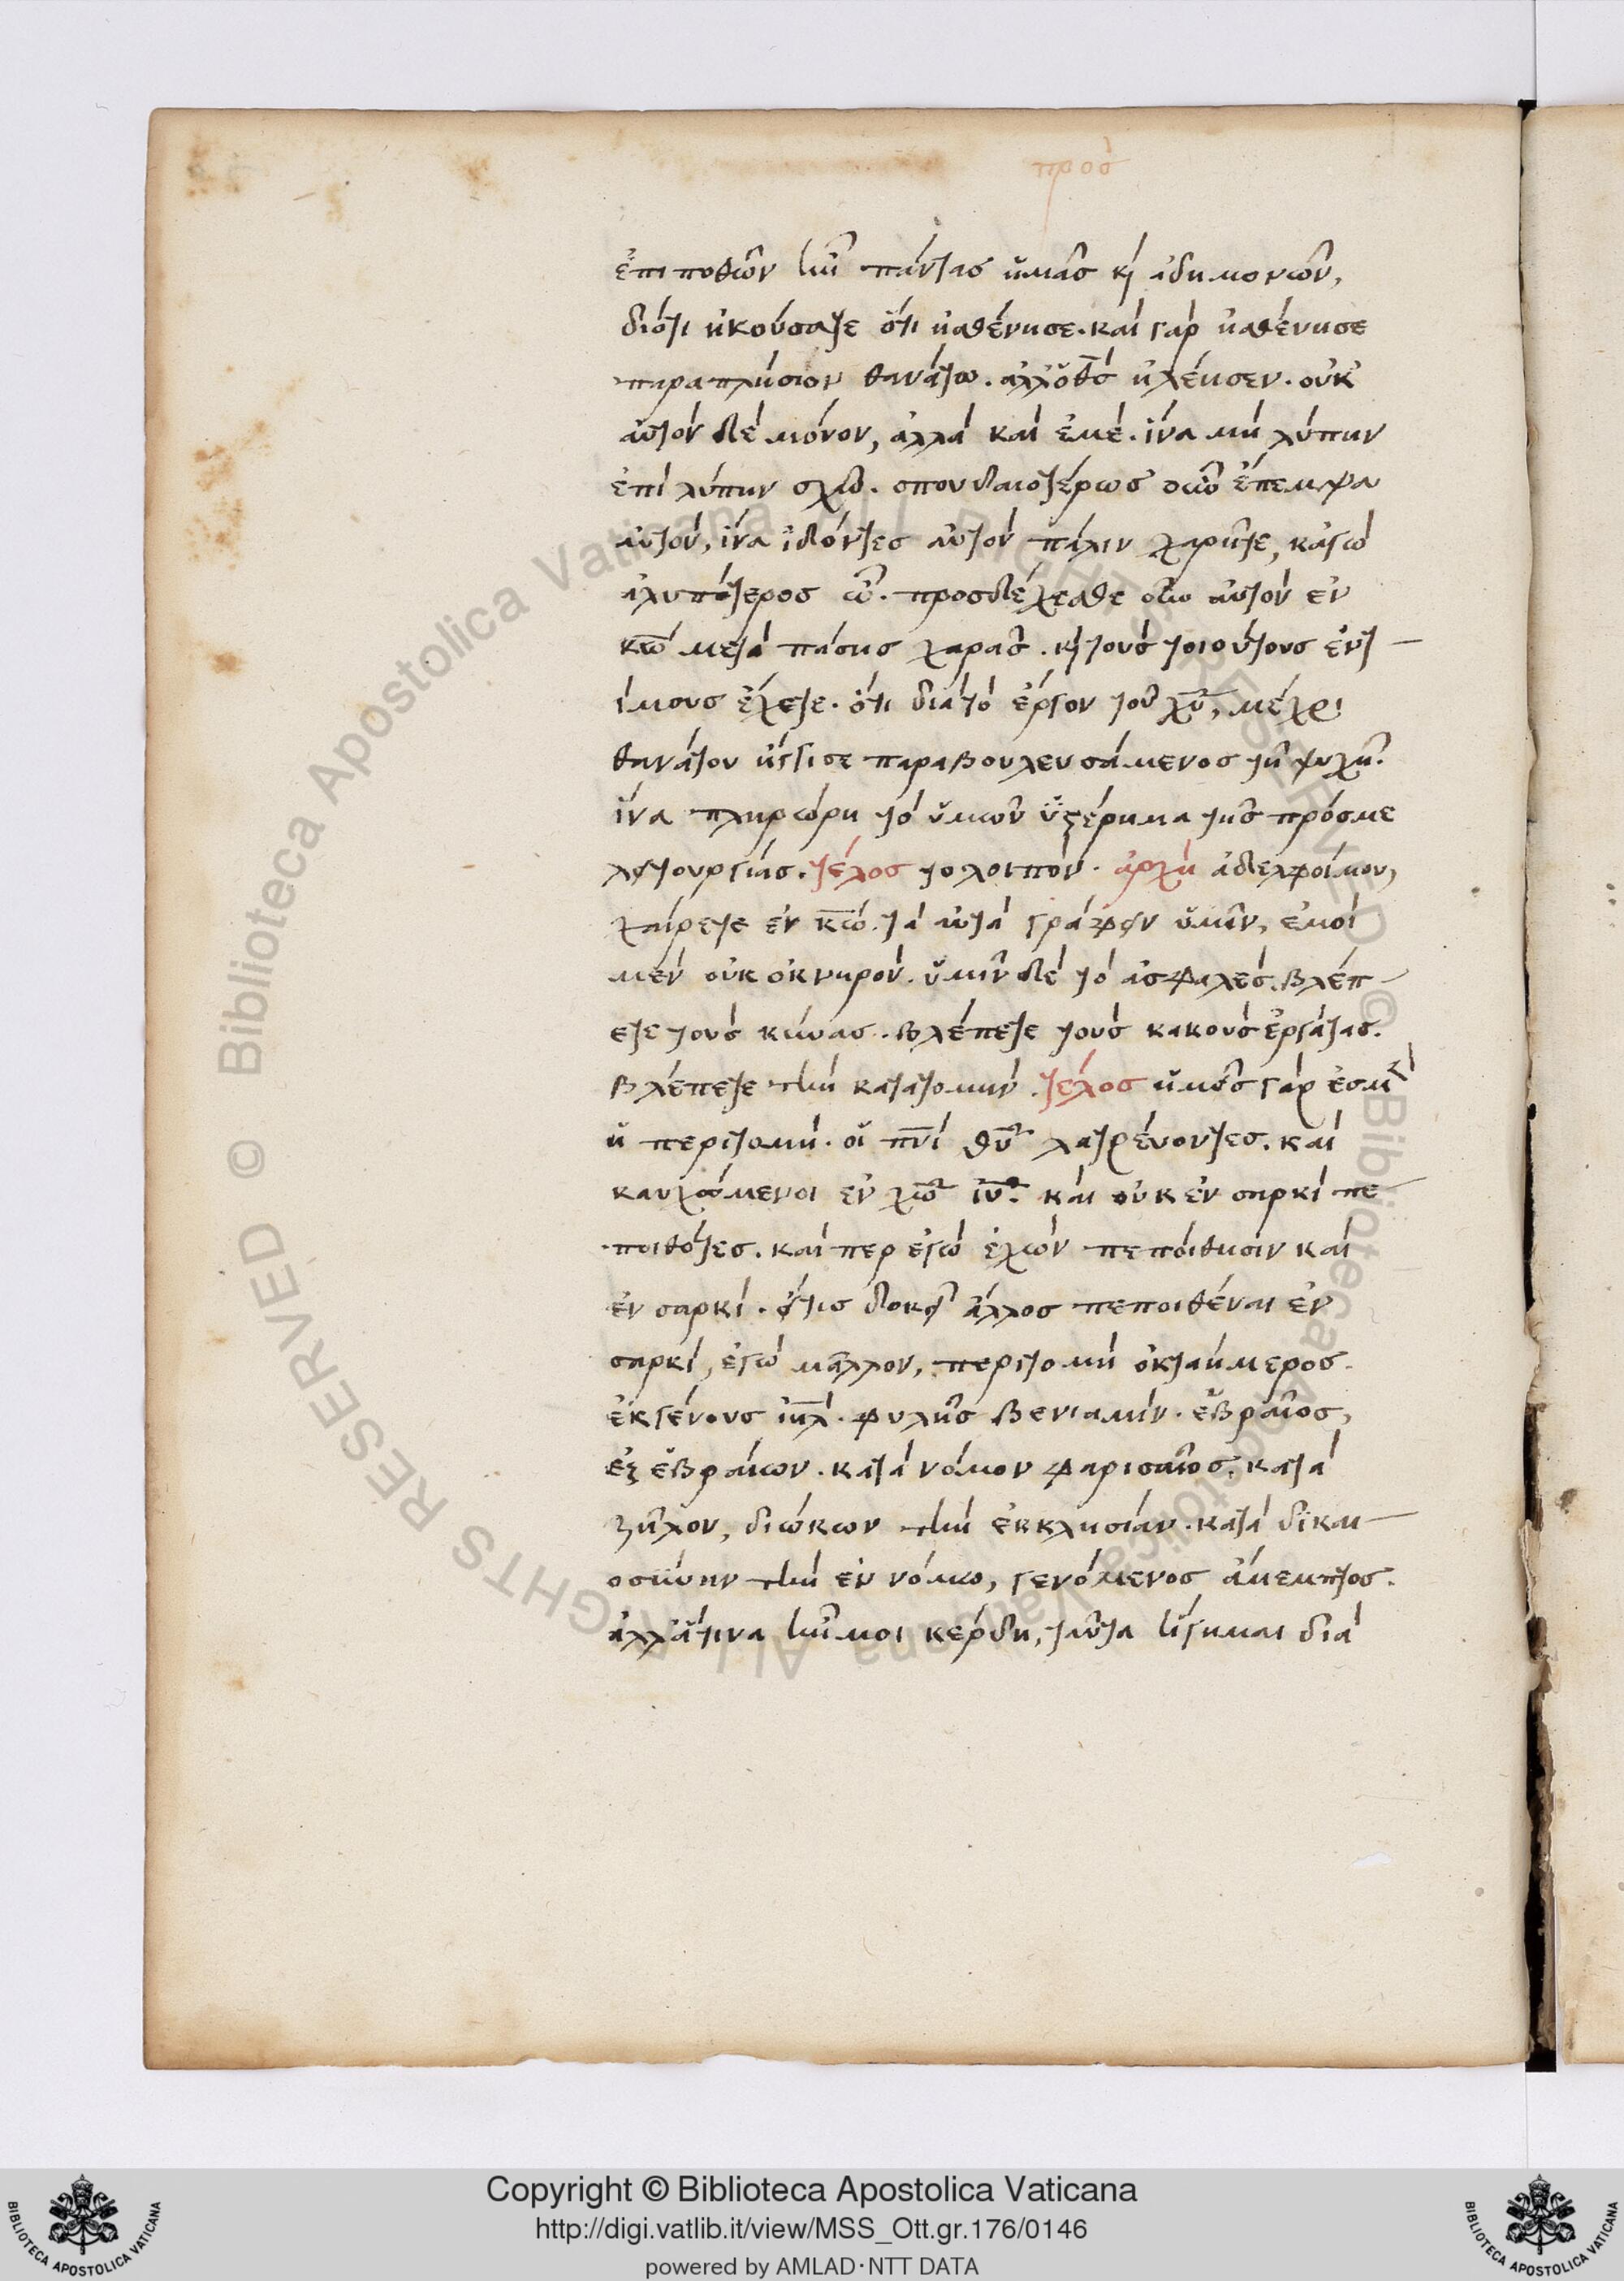 πρὸς
ἐπιποθῶν ἦν πάντας ὑμᾶς κ(αὶ) ἀδημονῶν,
διότι ἠκούσατε ὅτι ἠσθένησε. καὶ γὰρ ἠσθένησε
παραπλήσιον θανάτω. ἀλλ' ὁ θς ἠλέησεν. οὐκ
αὐτὸν δὲ μόνον, ἀλλὰ καὶ ἐμὲ. ἵνα μὴ λύπην
ἐπὶ λύπην σχῶ. σπουδαιοτέρως οὖν ἔπεμψα
αὐτὸν, ἵνα ἰδόντες αὐτὸν πάλιν χαρῆτε, κἀγὼ
ἀλυπότερος ὦ. προσδέχεσθε οὖν αὐτὸν ἐν
κω μετὰ πάσης χαρᾶς. κ(αὶ) τοὺς τοιούτους ἐντ
ίμους ἔχετε. ὅτι διὰ τὸ ἔργον τοῦ χυ, μέχρι
θανάτου ἤγγισε παραβουλευσάμενος τῆ ψυχῆ.
ἵνα πληρώση τὸ ὑμῶν ὑστέρημα τῆς πρός με
λειτουργίας. τέλος το λοιπὸν. ἀρχὴ ἀδελφοί μου,
χαίρετε ἐν κω. τὰ αὐτὰ γράφειν ὑμῖν, ἐμοὶ
μὲν οὐκ ὀκνηρὸν. ὑμῖν δὲ τὸ ἀσφαλὲς. βλέπ
ετε τοὺς κύνας. βλέπετε τοὺς κακοὺς ἐργάτας.
βλέπετε τὴν κατατομὴν. τέλος ἡμεῖς γάρ ἐσμεν
ἡ περιτομὴ. οἱ πνι θυ λατρεύοντες. καὶ
καυχώμενοι ἐν χω ιυ. καὶ οὐκ ἐν σαρκὶ πε
ποιθότες. καί περ ἐγὼ ἔχων πεποίθησιν καὶ
ἐν σαρκὶ. εἴ τις δοκεῖ ἄλλος πεποιθέναι ἐν
σαρκὶ, ἐγὼ μᾶλλον, περιτομὴ ὀκταήμερος.
ἐκ γένους ιηλ. φυλῆς βενιαμὶν. ἑβραῖος,
ἐξ ἑβραίων. κατὰ νόμον φαρισαῖος. κατὰ
ζῆλον, διώκων τὴν ἐκκλησίαν. κατὰ δικαι
οσύνην τὴν ἐν νόμω, γενόμενος ἄμεμπτος.
ἀλλ' ἅτινα ἦν μοι κέρδη, ταῦτα ἥγημαι διὰ
Copyright © Biblioteca Apostolica Vaticana
http://digi.vatlib.it/view/MSS_Ott.gr.176/0146
powered by AMLAD·NTT DATA